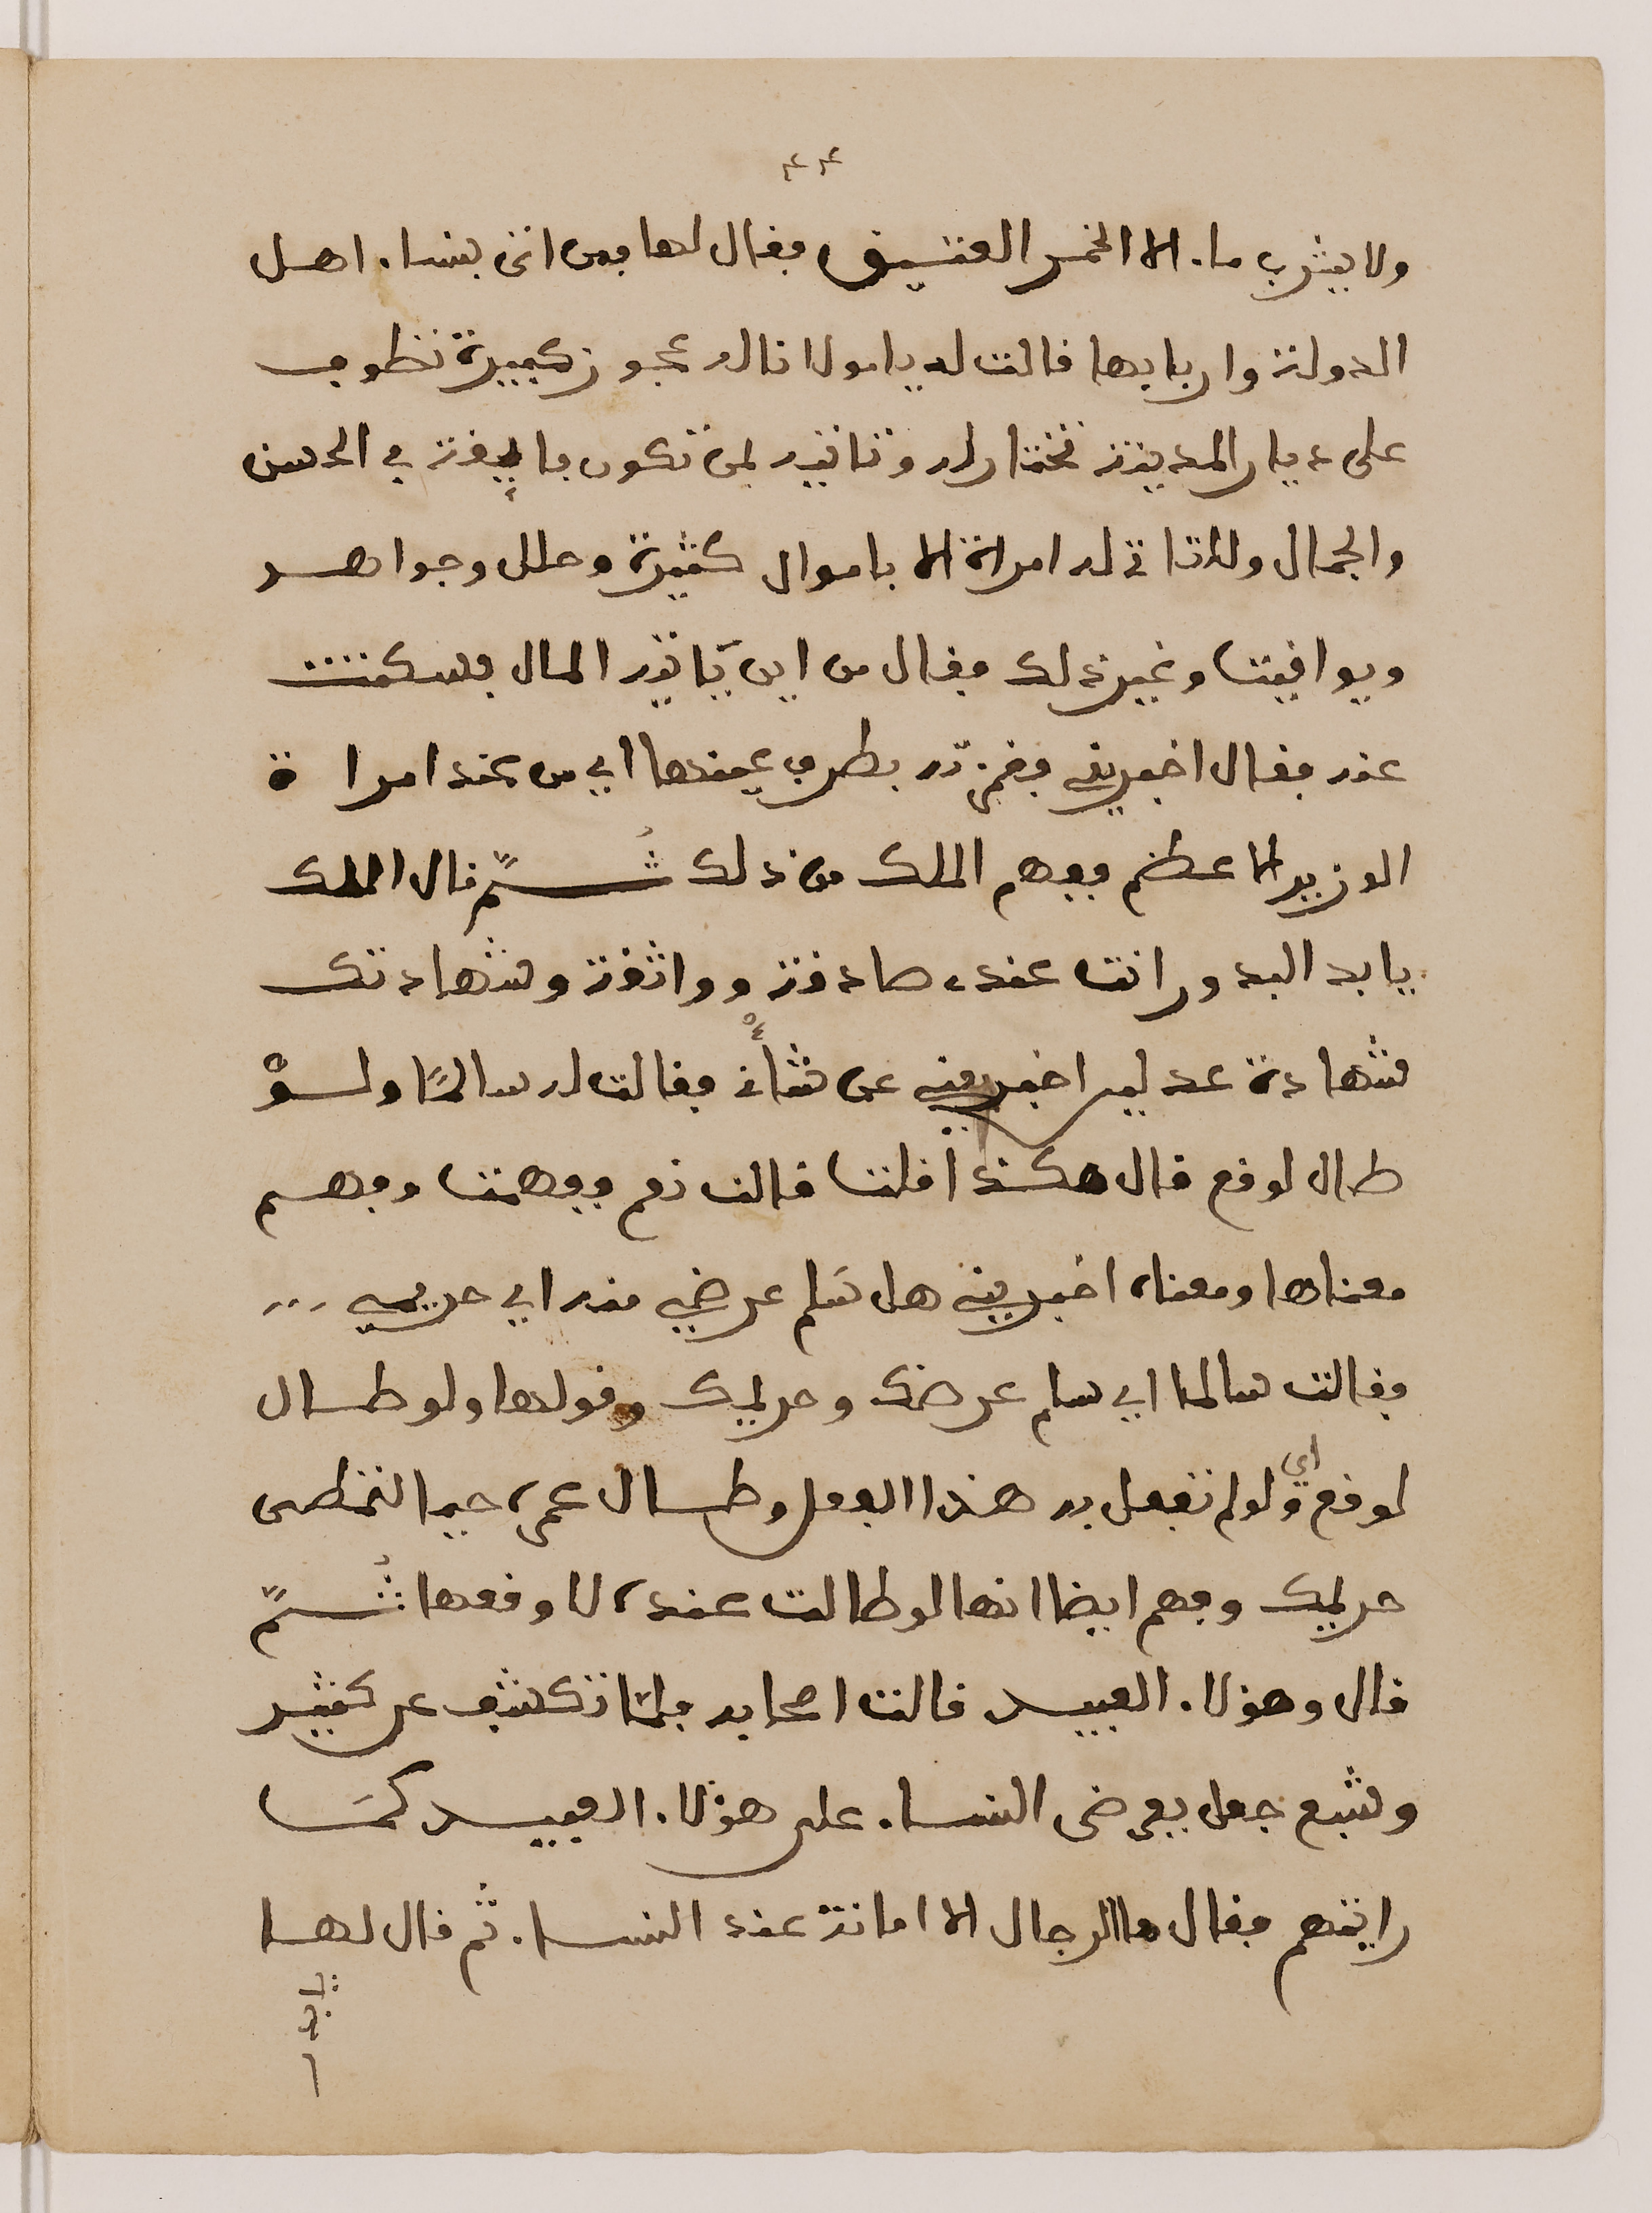 ٤٤
ولا يشرب ماء الا الخمر العتيق فقال لها فمن انى بنساء اهل
الدولة واربابها قالت له يا مولانا له عجوز كبيرة تطوف
على ديار المدينة تختار له وتاتيه بمن تكون فايقة في الحسن
والجمال ولا تاتي له امراة الا باموال كثيرة وحلل وجواهر
ويواقيت وغير ذلك فقال من اين ياتيه المال فسكتت
عنه فقال اخبريني فغمزته بطرف عينها اي من عند امراة
الوزير الاعظم ففهم الملك من ذلك ثُمَّ قال الملك
يا بدر البدور انت عندي صادقة وواثقة وشهادتك
شهادة عدلين اخبريني عن شأني فقالت له سالمًا ولوْ
طال لوقع قال هكذا قلت قالت نعم ففهمت وفهم
معناها ومعناه اخبريني هل سَلم عرضي منه اي حريمي ...
فقالت سالما اي سلم عرضك وحريمك وقولها ولو طال
لوقع اي ولو لم تفعل به هذا الفعل وطال عمره حيا لتخطى
حريمك وفهم ايضا انها لو طالت عنده لاوقعها ثُمَّ
قال وهؤلاء العبيد قالت اصحابه فلمَّا تكشف عن كثير
وشبع جعل يعرض النساء على هؤلاء العبيد كمَا
رايتهم فقال ما الرجال الا امانة عند النساء ثم قال لها
يا بدر ا